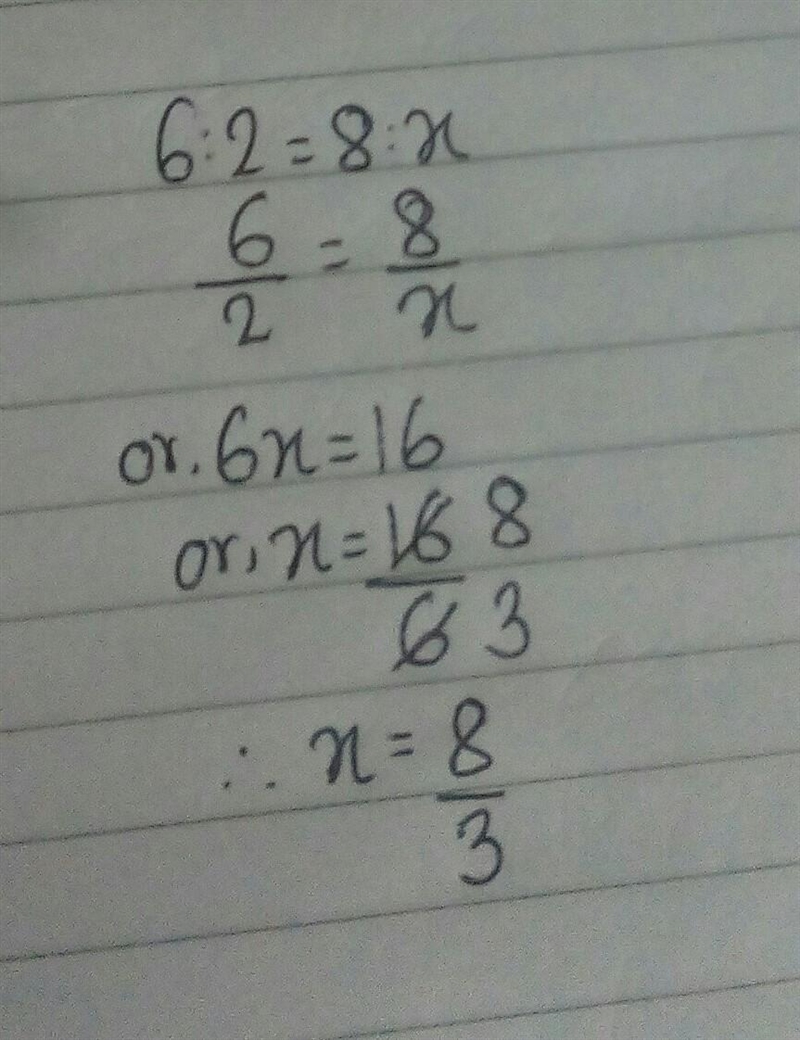 6:2=8:x
6/2 = 8/x
or. 6x=16
or, x=16/6 8/3
∴ x = 8/3